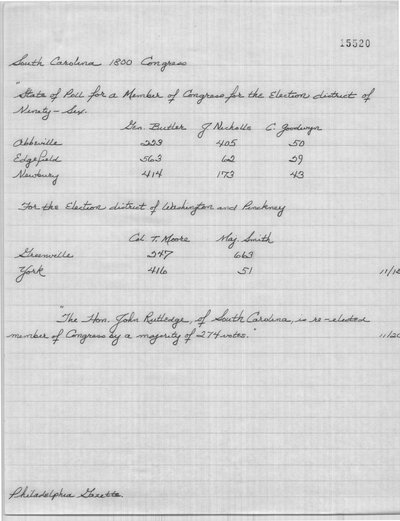 15520
South Carolina 1800 Congress
"State of Poll for a Member of Congress for the Election district of
Ninety-Six.
Gen. Butler J Nicholls C. Goodwyn
Abbeville 223 405 50
Edgefield 563 62 29
Newbury 414 173 43
For the Election district of Washington and Pinckney
Col T. Moore Maj. Smith
Greenville 247 663
York 416 51 11/18
"The Hon. John Rutledge, of South Carolina, is re-elected
member of Congress by a majority of 274 votes." 11/20
Philadelphia Gazette.